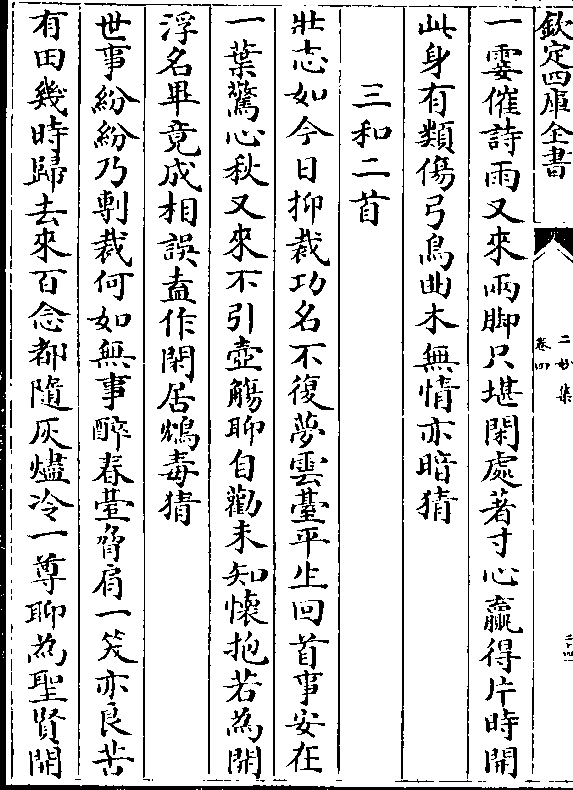 欽定四庫全書
二妙集
卷四
一霎催詩雨又來兩脚只堪閑處著寸心贏得片時開
此身有類傷弓鳥曲木無情亦暗猜
三和二首
壯志如今日抑裁功名不復夢雲臺平生回首事安在
一葉驚心秋又來不引壺觴聊自勸未知懷抱若為開
浮名畢竟成相誤盍作閑居鴆毒猜
世事紛紛乃剸裁何如無事醉春臺脅肩一笑亦良苦
有田幾時歸去來百念都隨灰燼冷一尊聊為聖賢開